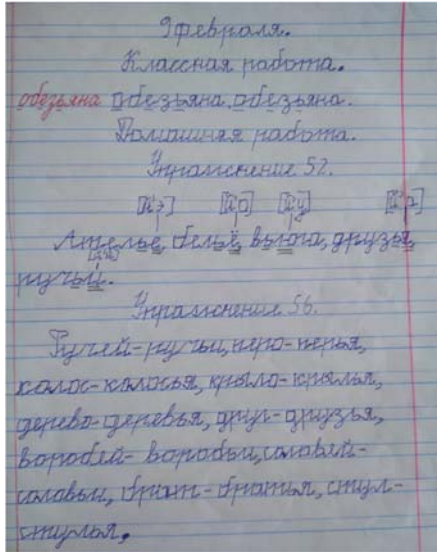 9 февраля.
Классная работа.
обезьяна обезьяна. обезьяна.
Домашняя работа.
Упражнение 52.
[й'э] [й'о] [й'у] [й'а]
Ателье, бельё, вьюга, друзья,
[й'и]
ручьи.
Упражнение 56.
Ручей-ручьи, перо-перья,
колос-колосья, крыло-крылья,
дерево-деревья, друг-друзья,
воробей-воробьи, соловей-
соловьи, брат-братья, стул-
стулья.